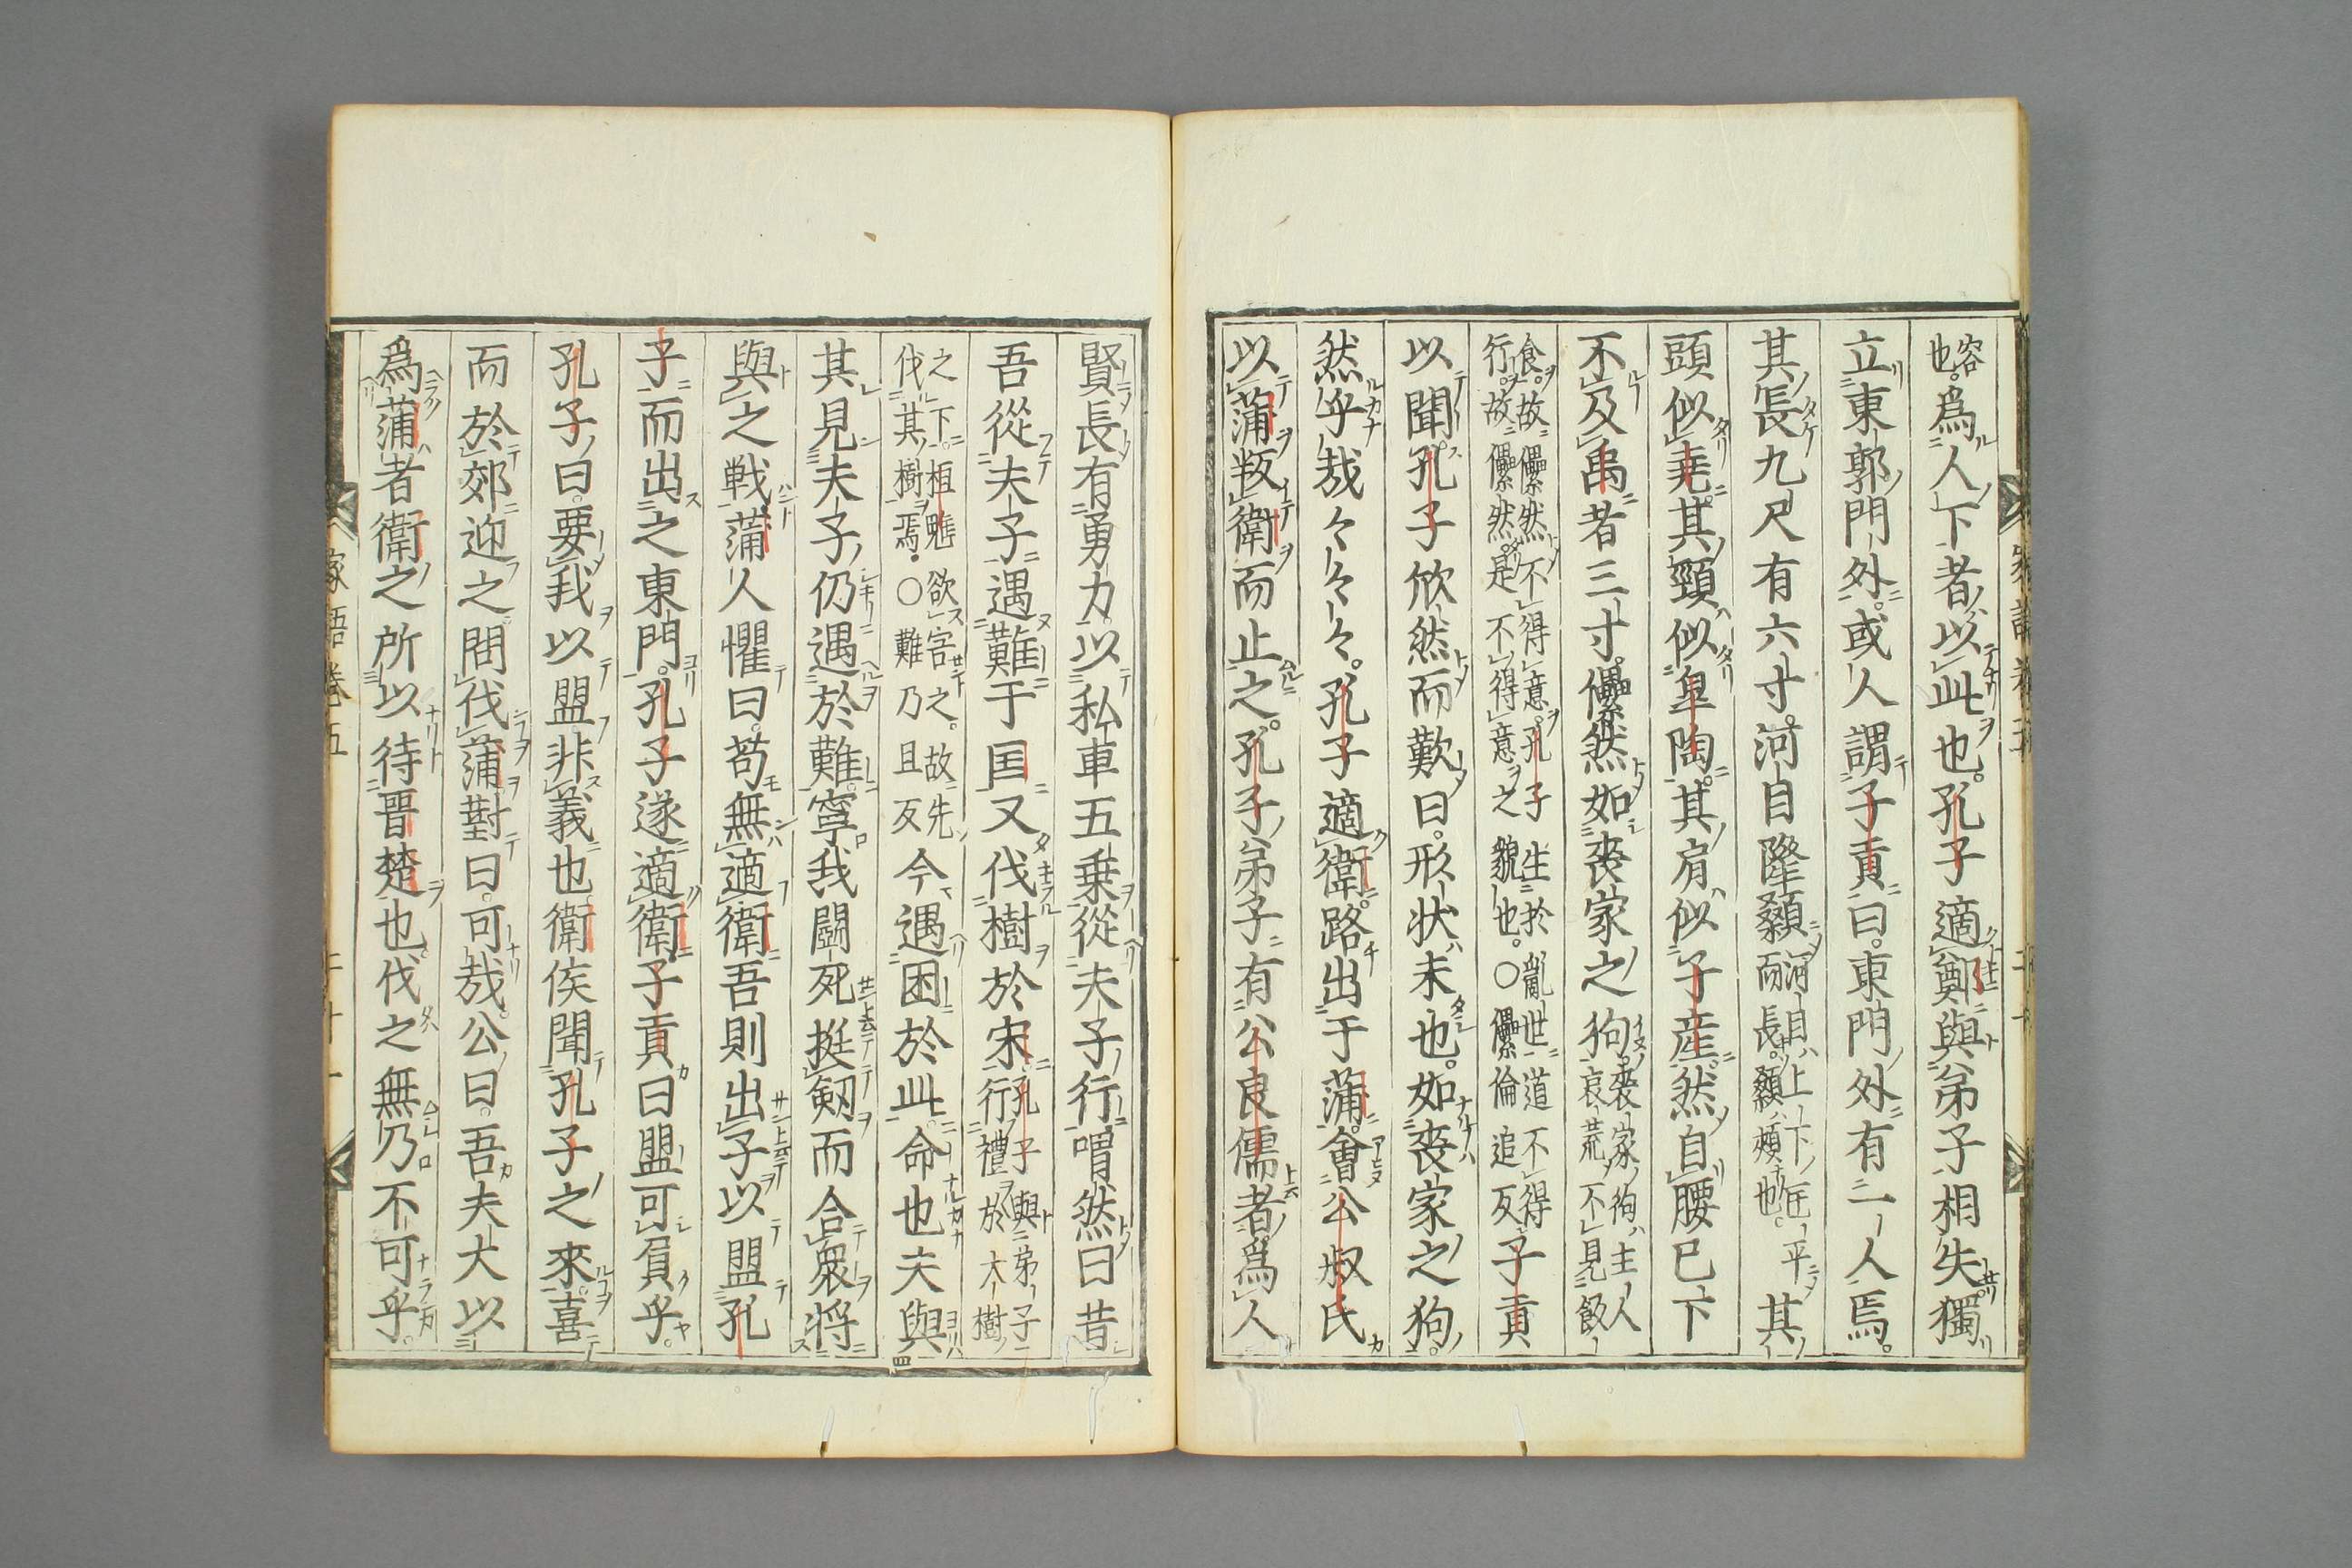 容也。爲人下者以此也。孔子適鄭與弟子相失獨
立東郭門外或人謂子貢曰。東門外有一人焉。
其長九尺有六寸。河目隆顙河目上下匡平而長。顙頰也。其
頭似堯其頸似皐陶其肩似子産然自腰已下
不及禹者三寸。儽然如喪家之狗。喪家狗主人哀荒不見飯
食。故儽然不得意。孔子生於亂世道不得行。故儽然。是不得意之貌也。○儽倫追反子貢
以聞孔子欣然而歎曰。形狀未也。如喪家之狗。
然乎哉々々々。孔子適衛。路出于蒲。會公叔氏
以蒲叛衛而止之。孔子弟子有公良儒者爲人
賢長有勇力。以私車五乗從夫子行喟然曰昔
吾從夫子遇難于匡又伐樹於宋孔子與弟子行禮於大樹
之下。桓魋欲害之。故先伐其樹焉。○難乃且反今遇困於此。命也夫與
其見夫子仍遇於難。寧我鬪死挺剱而合衆将
與之戦蒲人懼曰。苟無適衛吾則出子以盟孔
子而出之東門。孔子遂適衛子貢曰盟可負乎。
孔子曰。要我以盟非義也。衛侯聞孔子之來。喜
而於郊迎之。問伐蒲對曰。可哉。公曰。吾夫大以
爲蒲者衛之所以待晋楚也伐之無乃不可乎。
家語巻五
二十一